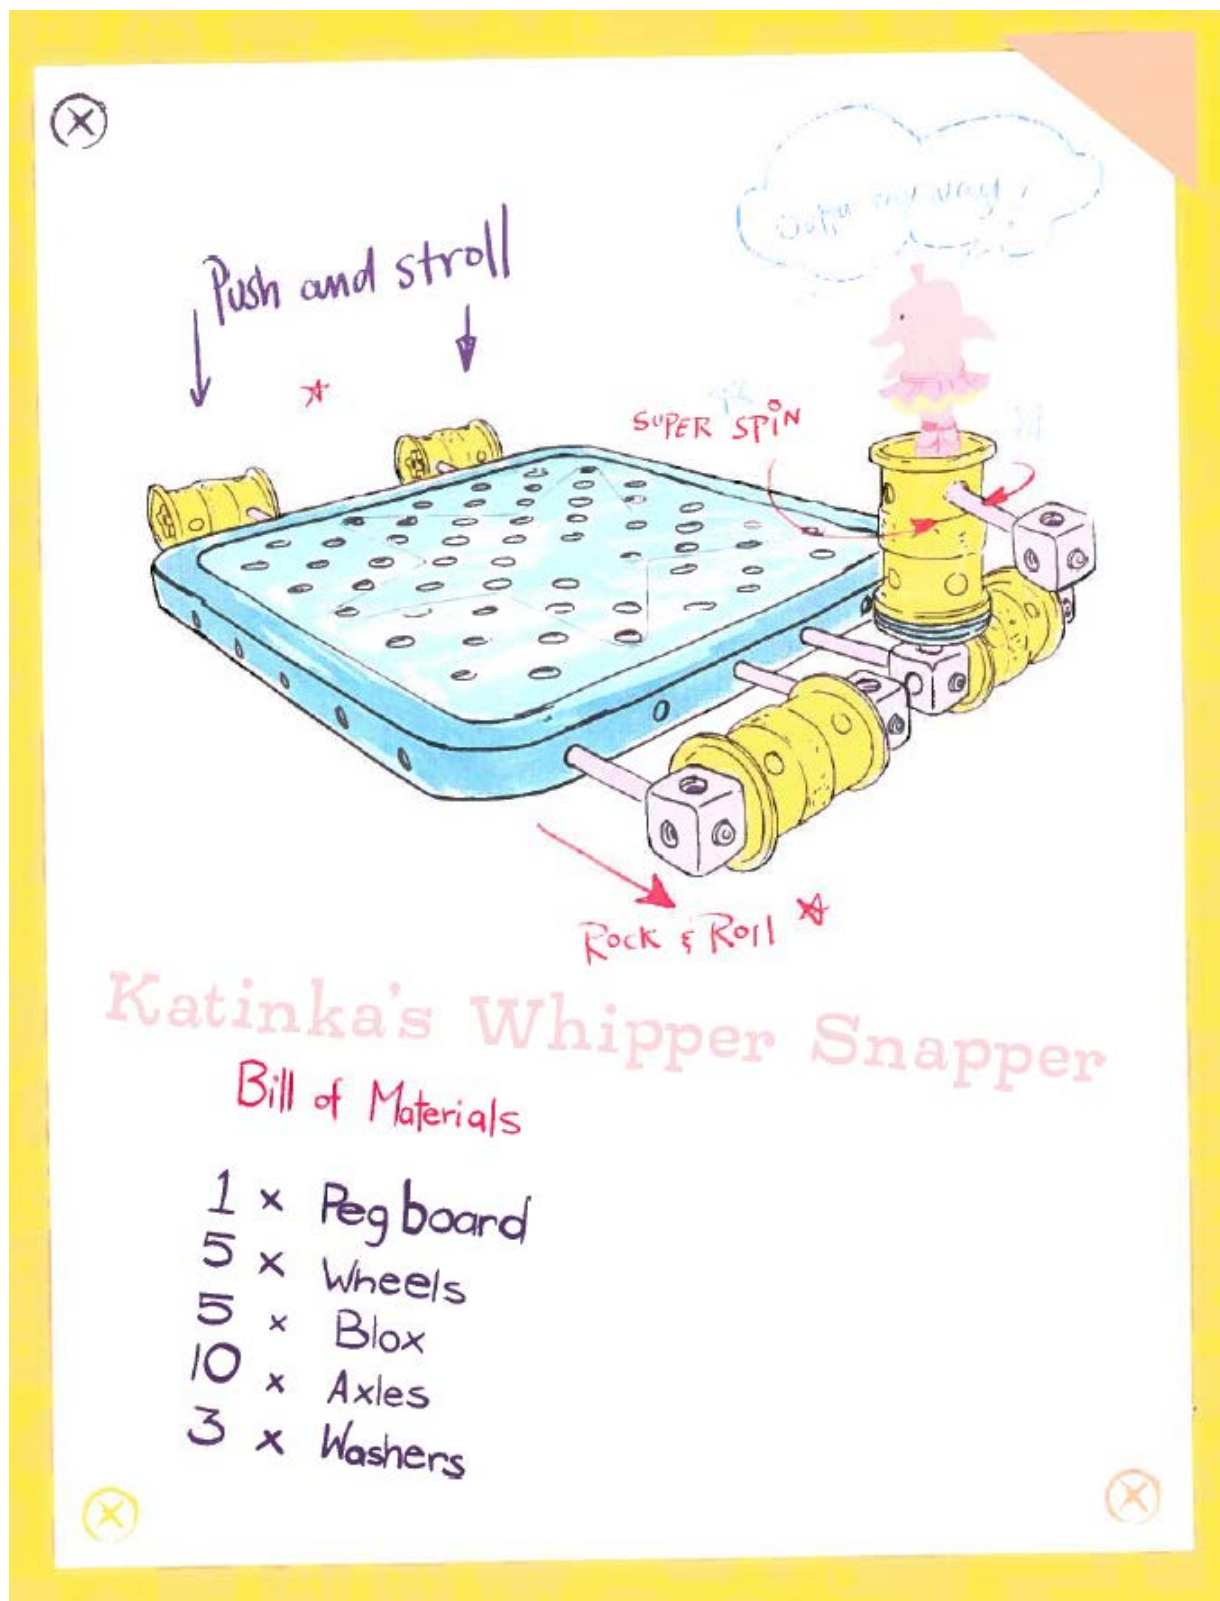 Push and stroll
my way!
SUPER SPIN
ROCK & ROll
Katinka's Whipper Snapper
Bill of Materials
1 x Peg board
5 x Wheels
5 x Blox
10 x Axles
3 x Washers